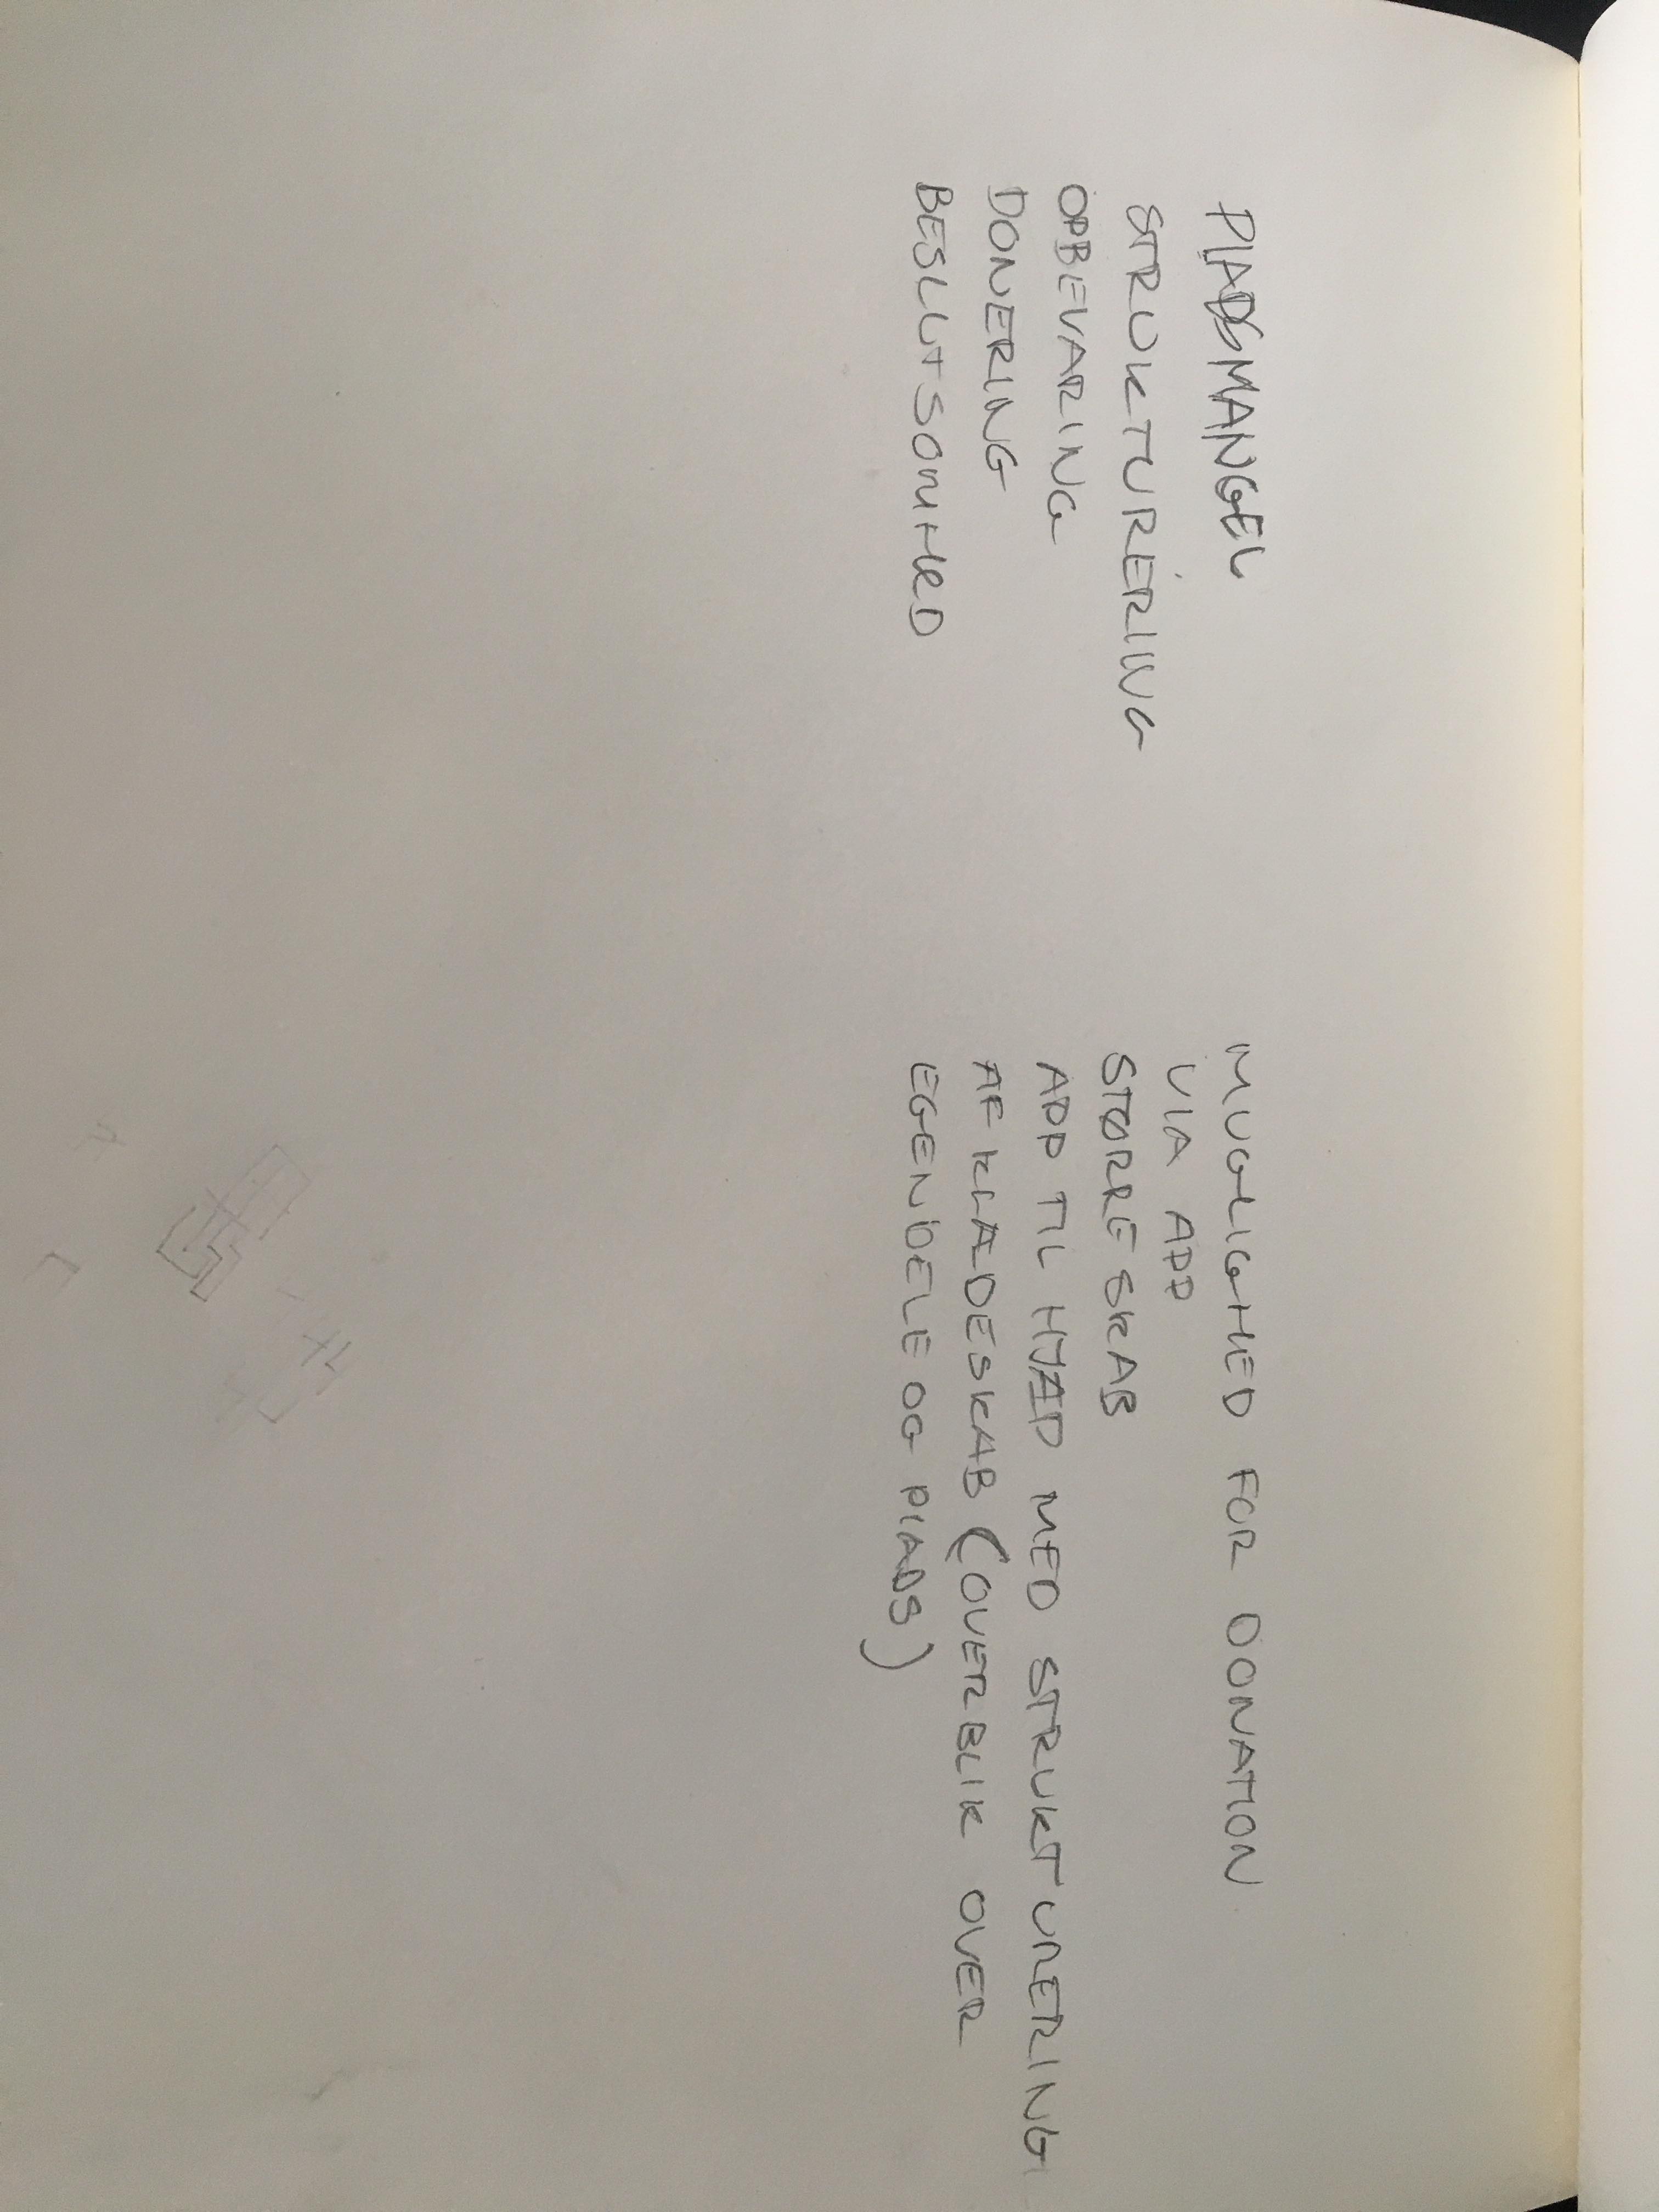 PLADSMANGEL
STRUKTURERING
OPBEVARING
DONERING
BESLUTSOMHED
MULIGHED FOR DONATION
VIA APP
STØRRE SKAB
APP TIL HJÆP MED STRUKTURERING
AF KLÆDESKAB (OVERBLIK OVER
EGENDELE OG PLADS)